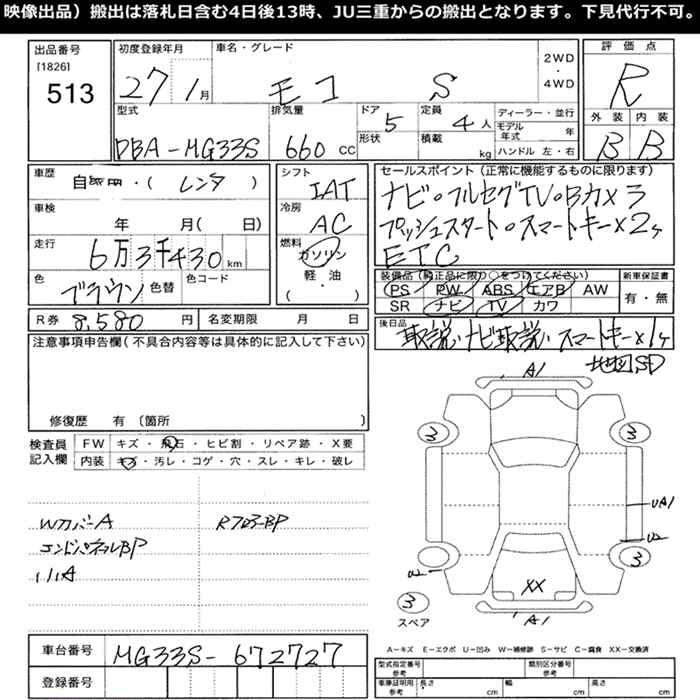 映像出品）搬出は落札日含む4日後13時、JU三重からの搬出となります。下見代行不可。
出品番号 初度登録年月 車名・グレード 評価点
[1826]
513 27 1月 モコ S 2WD・4WD R
型式 排気量 ドア 5 定員 4人 ディーラー・並行 外装 内装
形状 積載 kg モデル年式 年
DBA-MG33S 660 CC ハンドル 左・右 B B
車歴 自家用・( レンタ ) シフト IAT セールスポイント (正常に機能するものに限ります)
車検 年 月( 日) 冷房 AC ナビ・フルセグTV・Bカメラ
プッシュスタート・スマートキー×2ヶ
走行 6万3千430km 燃料 ガソリン 軽・油 ( ・ ) ETC
色 ブラウン 色替 色コード 装備品 (純正品に限り○をつけてください) 新車保証書
PS PW ABS エアB AW 有・無
SR ナビ TV カワ
R券 8,580 円 名変期限 月 日 後日品 取説・ナビ取説・スマートキー×1ヶ
地図SD
注意事項申告欄(不具合内容等は具体的に記入して下さい)
修復歴 有 〔箇所 〕
検査員記入欄 FW キズ・飛石・ヒビ割・リペア跡・X要
内装 キズ・汚レ・コゲ・穴・スレ・キレ・破レ
WカバーA
エンドパネルBP
〃A
A1
3 3
UA1
U2
U2 3
XX
3 スペア A1
車台番号 MG33S-672727
登録番号
A－キズ E－エクボ U－凹み W－補修跡 S－サビ C－腐食 XX－交換済
型式指定番号 参考 類別区分番号 参考
車庫証明用 参考 長さ cm 幅 cm 高さ cm